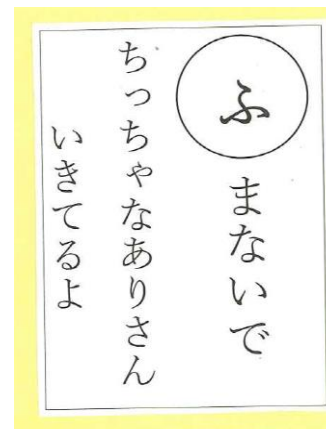 ふまないで
ちっちゃなありさん
いきてるよ